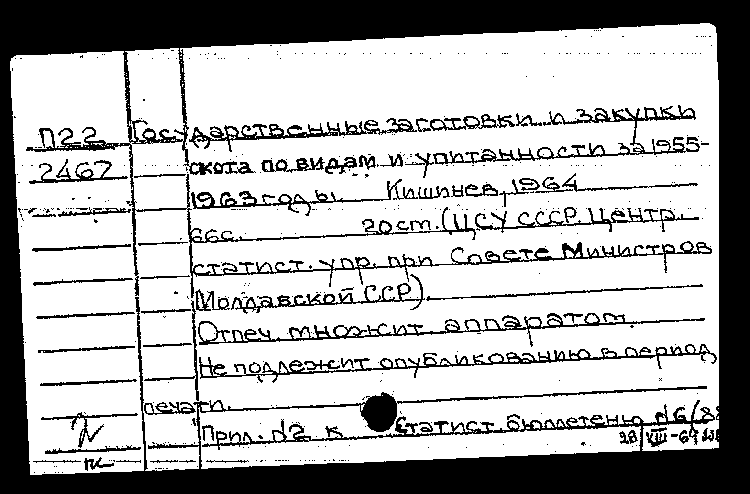 П22 Государственные заготовки и закупки
2467 скота по видам и упитанности за 1955-
1963 годы. Кишинев, 1964
66с. 20 ст. (ЦСУ СССР. Центр.
статист. упр. при Совете Министров
Молдавской ССР).
Отпеч. множит. аппаратом.
Не подлежит опубликованию в период
печати.
Прил. №2 к Статист. бюллетеню №6/
28/VIII-64